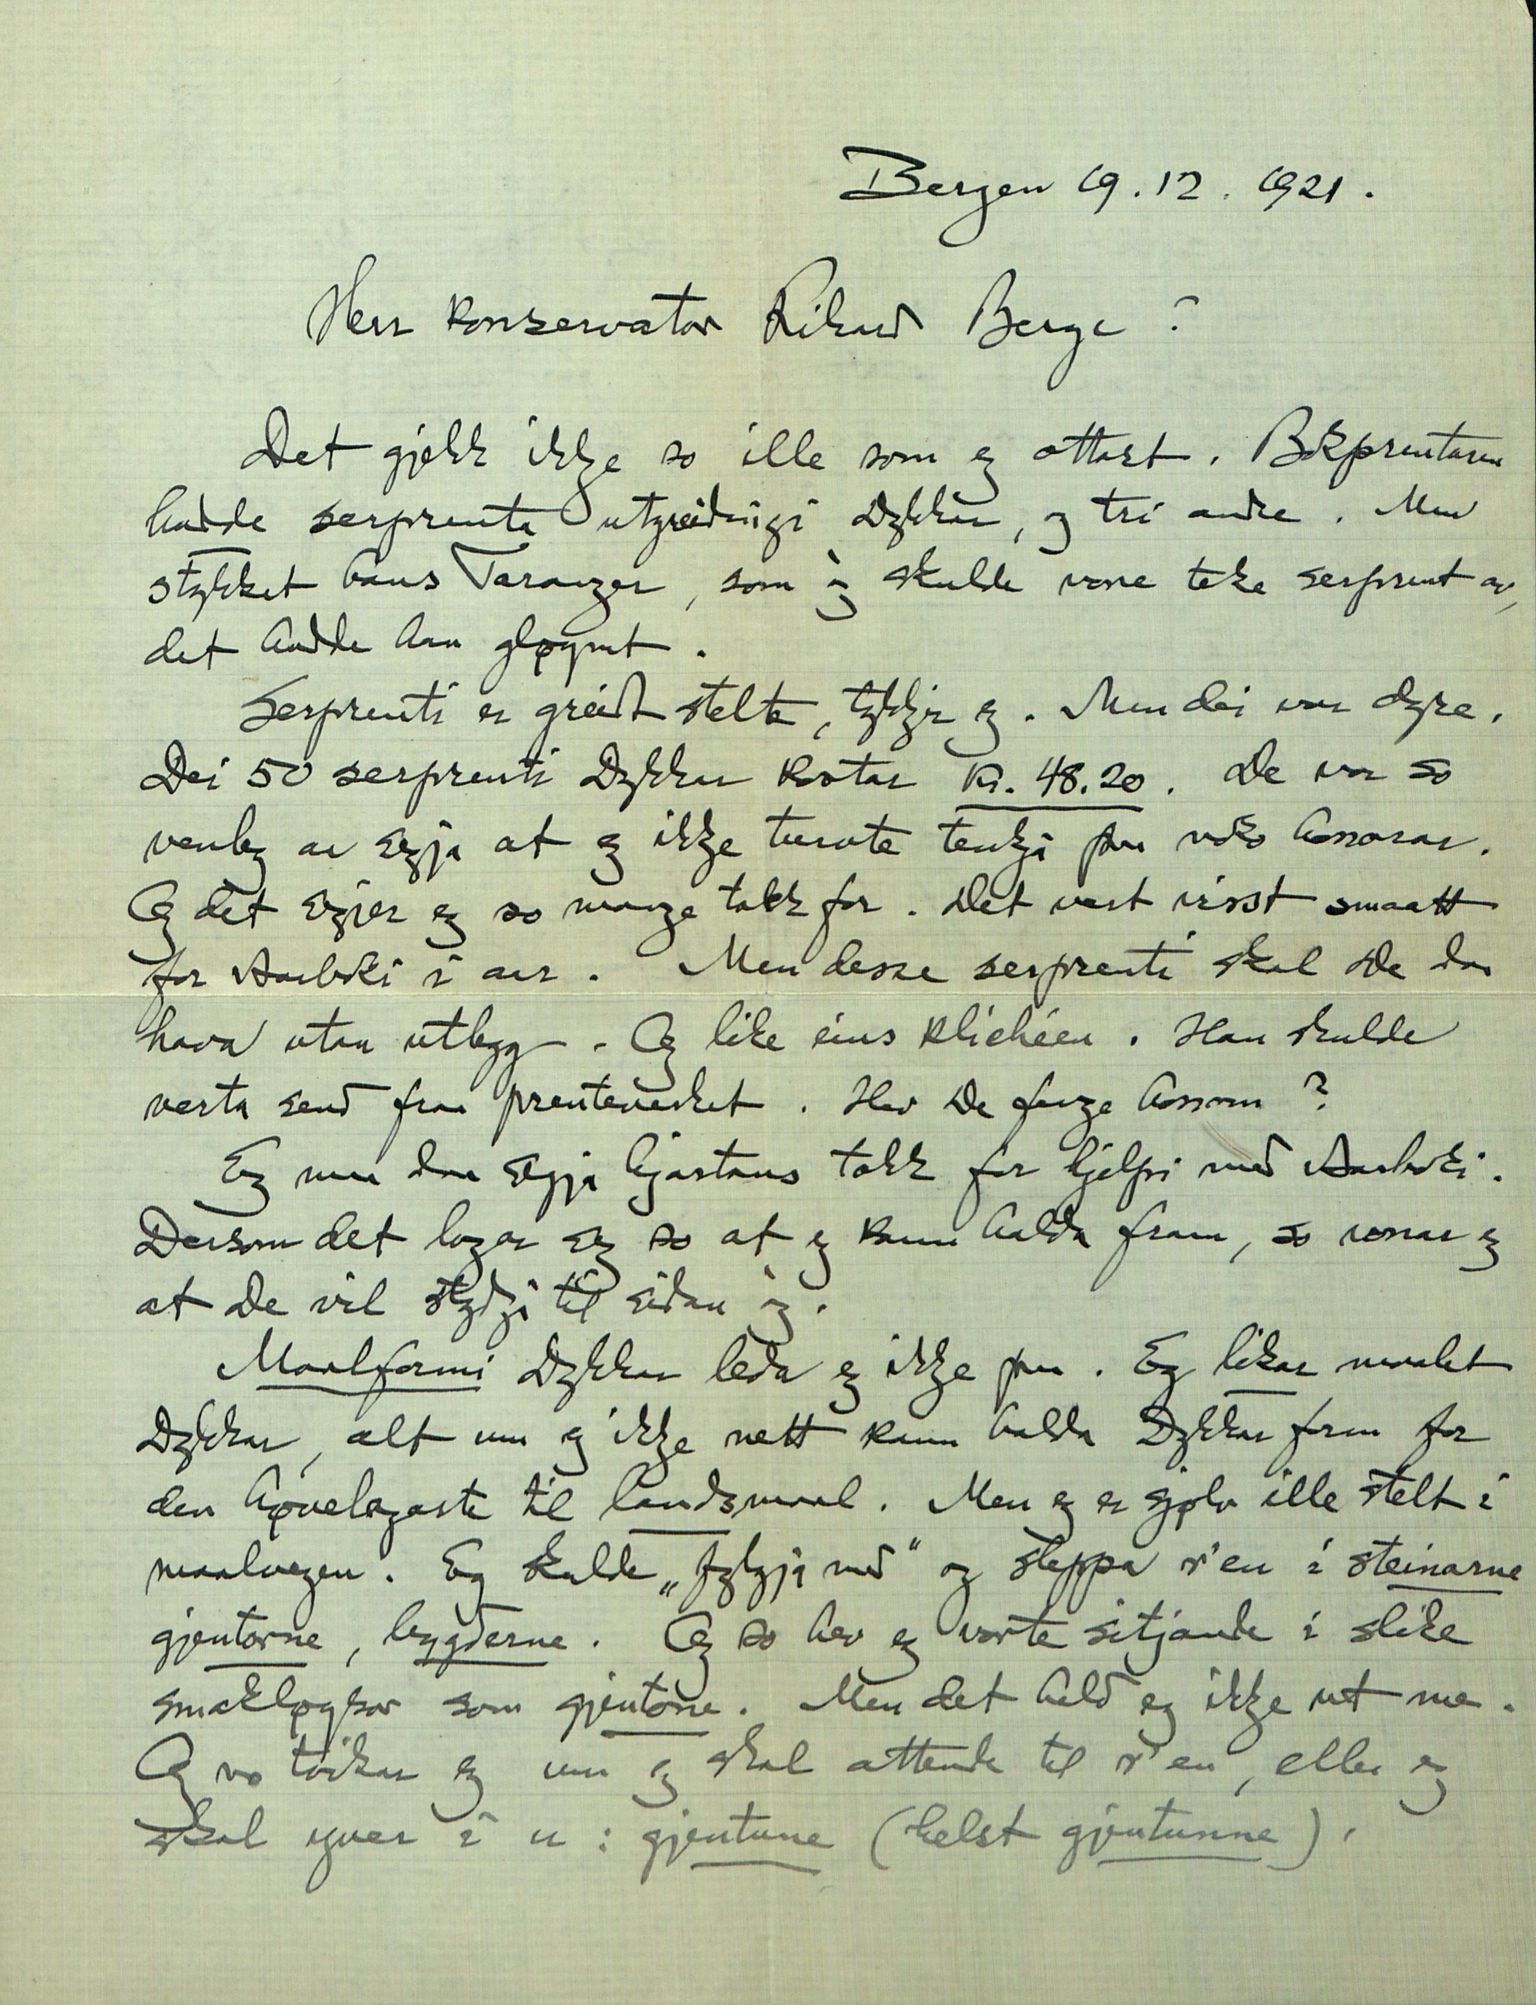 Bergen 19.12.1921.
Herr Konservator Rikard Berge!
Det gjekk ikkje so ille som eg ottast. Bokprentaren
hadde serprenta utgreidingi Dykkar, og tri andre. Men
stykket hans Taranger, som òg skulde vore teke serprent av,
det hadde han gløymt.
Serprenti er greidt stelte, tykkjer eg. Men dei var dyre.
Dei 50 serprenti Dykkar kostar kr. 48.20. De var so
venleg av segja at eg ikkje turvte tenkja paa noko honorar.
Og det segjer eg so mange takk for. Det vert visst smaatt
for Aarboki i aar. Men desse serprenti skal De daa
hava utan utlegg. Og like eins klichéen. Han skulde
verta send fraa prenteverket. Hev De fenge honom?
Eg maa daa segja hjartans takk for hjelpi med Aarboki.
Dersom det lagar seg so at eg kann halda fram, so vonar eg
at De vil stydja til sidan òg.
Maalformi Dykkar leda eg ikkje paa. Eg likar maalet
Dykkar, alt um eg ikkje nett kann halda Dykkar form for
den høvelegaste til landsmaal. Men eg er sjølv ille stelt i
maalvegen. Eg skulde „fylgja med" og sleppa r'en i steinarne
gjentorne, bygderne. Og so hev eg vorte sitjande i slike
smakløysor som gjentone. Men det held eg ikkje ut med.
Og no tvikar eg um eg skal attende til r'en, eller eg
skal yver i u: gjentune (helst gjentunne).